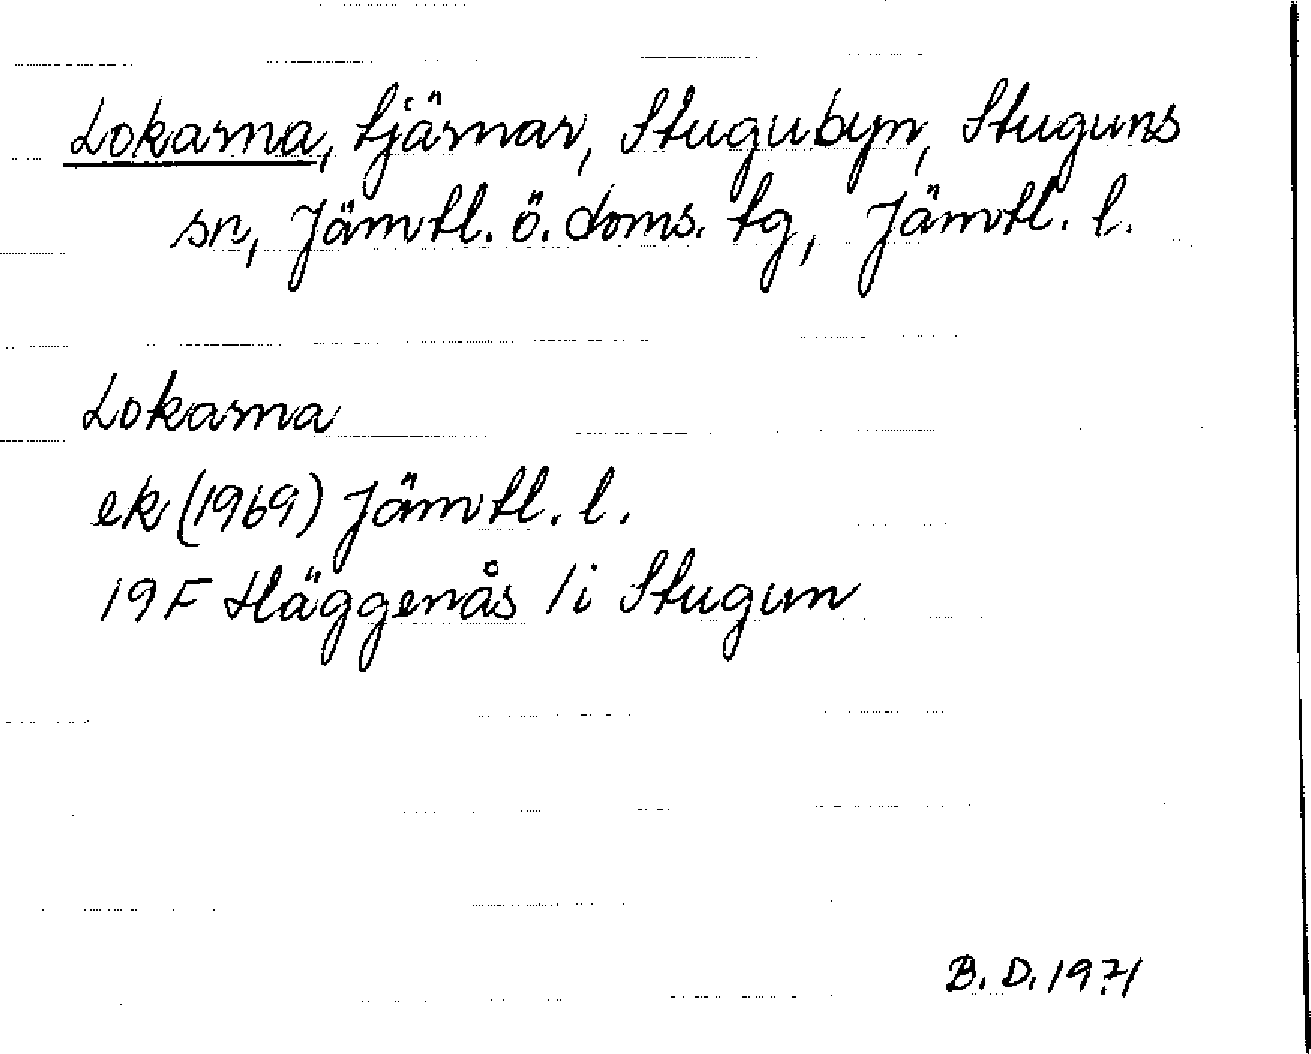 Lokarna, tjärnar, Stugubyn, Stuguns
sn, Jämtl. ö. doms. tg, Jämtl. l.
Lokarna
ek (1969) Jämtl. l.
19 F Häggenås /i Stugun
B. D. 1971